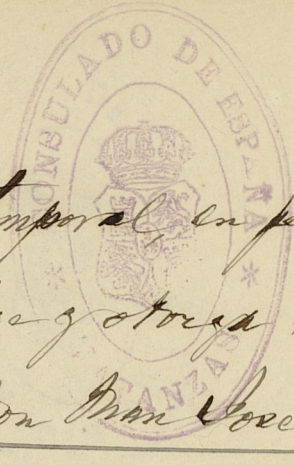 CONSULADO DE ESPAÑA
MATANZAS
temporal, en
y otorga
Don Juan José